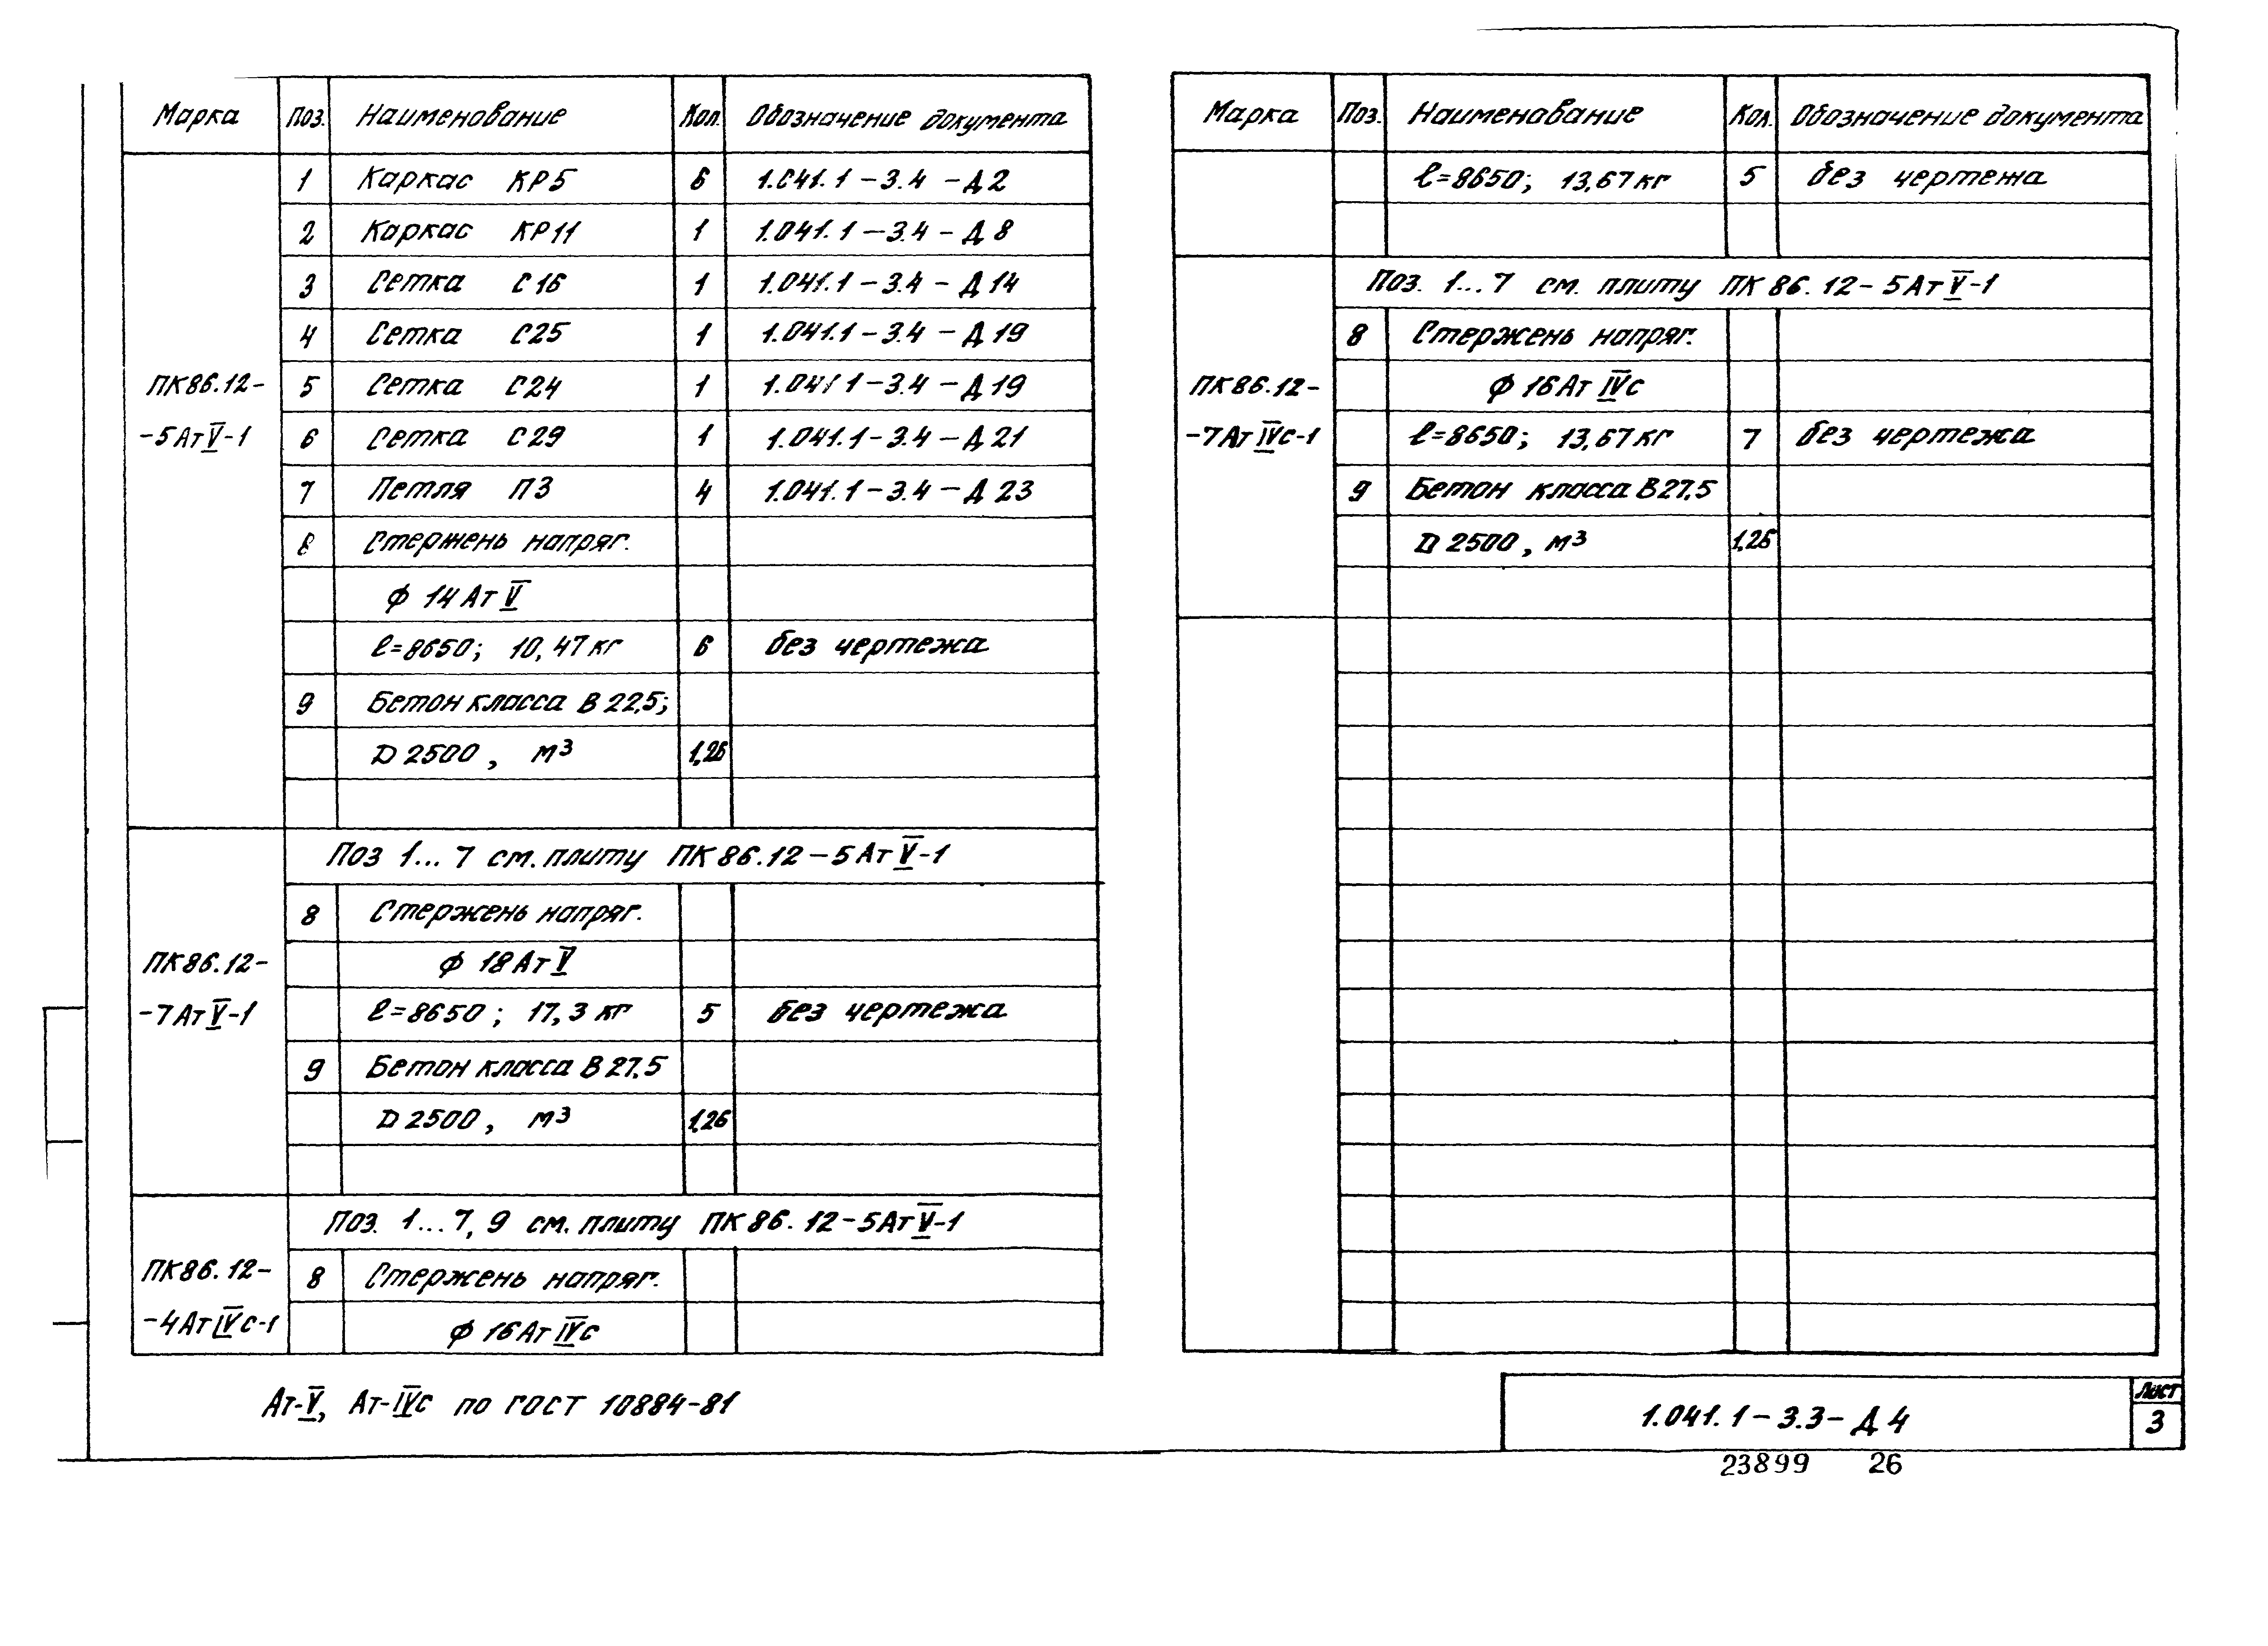 Марка Поз. Наименование Кол. Обозначение документа
1 Каркас КР5 6 1.041.1-3.4-Д2
2 Каркас КР11 1 1.041.1-3.4-Д8
3 Сетка С16 1 1.041.1-3.4-Д14
4 Сетка С25 1 1.041.1-3.4-Д19
ПК86.12- 5 Сетка С24 1 1.041 1-3.4-Д19
-5АтV-1 6 Сетка С29 1 1.041.1-3.4-Д21
7 Петля П3 4 1.041.1-3.4-Д23
8 Стержень напряг.
ф 14АтV
ℓ=8650; 10,47кг 6 без чертежа
9 Бетон класса В22,5;
D2500, м³ 1,26
Поз 1...7 см. плиту ПК86.12-5АтV-1
8 Стержень напряг.
ПК86.12- ф 18АтV
-7АтV-1 ℓ=8650; 17,3кг 5 без чертежа
9 Бетон класса В27,5
D2500, м³ 1,26
Поз. 1...7, 9 см. плиту ПК86.12-5АтV-1
ПК86.12- 8 Стержень напряг.
-4АтIVс-1 ф 16АтIVс
Ат-V, Ат-IVс по ГОСТ 10884-81
Марка Поз. Наименование Кол. Обозначение документа
ℓ=8650; 13,67кг 5 без чертежа
Поз. 1...7 см. плиту ПК86.12-5АтV-1
8 Стержень напряг.
ПК86.12- ф 16АтIVс
-7АтIVс-1 ℓ=8650; 13,67кг 7 без чертежа
9 Бетон класса В27,5
D2500, м³ 1,26
1.041.1-3.3-Д4
Лист
3
23899 26